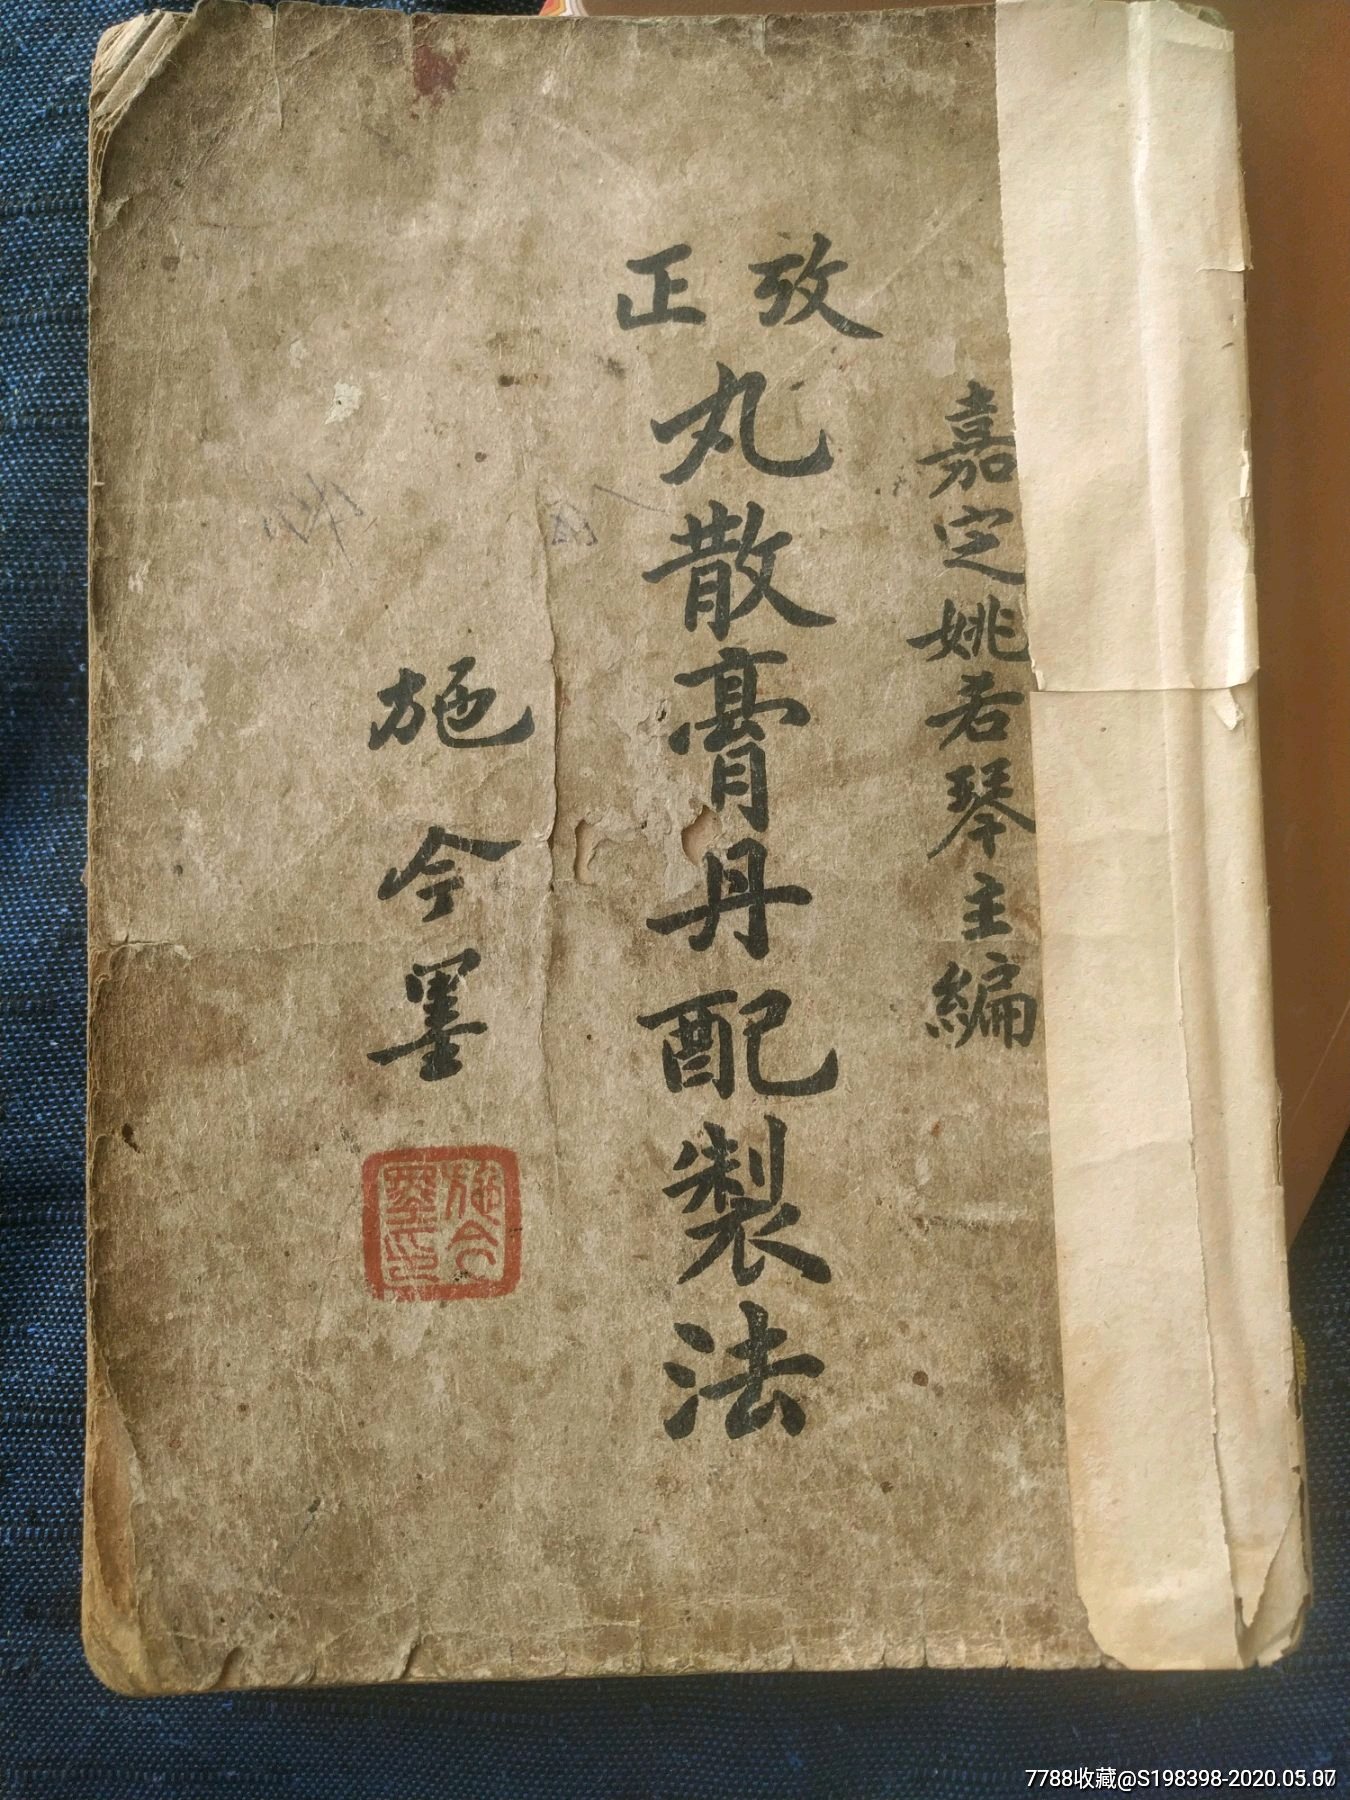 嘉定姚若琴主編
攷正
丸散膏丹配製法
施今墨
施今墨印
7788收藏@S198398-2020.05.07